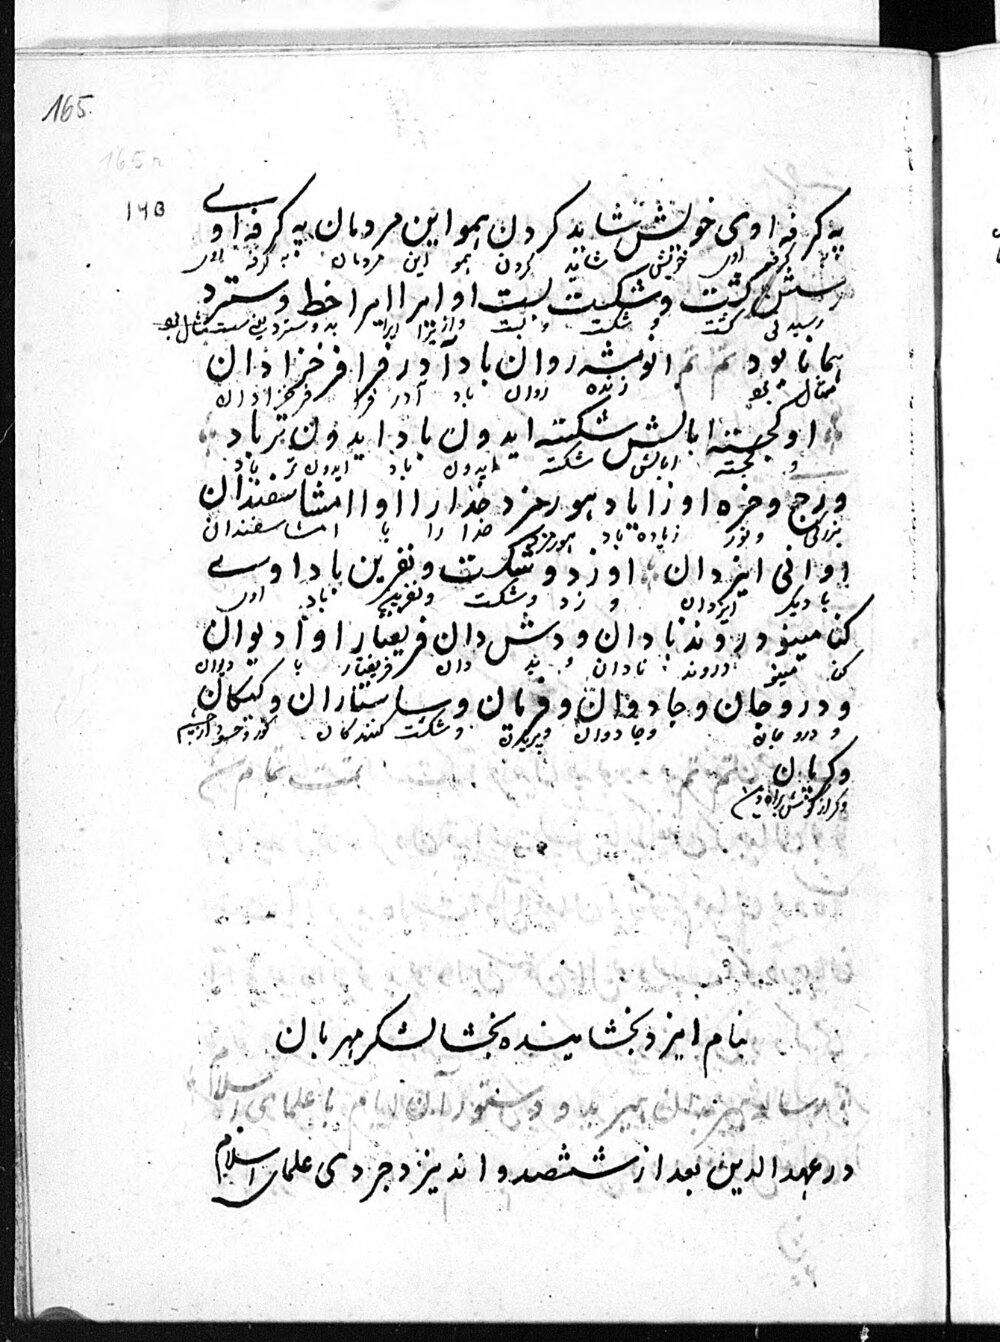 165
165r
۱۶۵
په کرفه اوی خویش شاید کردن همو این مردمان په کرفه اوی
په کرفه اوی خویش شاید کردن همو این مردمان به کرفه اوی
رسش گشت و شکست بست او ایرا ایرا خط و سترد
رسیدنی گشت و شکست و بست و ازیرا ایرا
همانا بود تم تم انوشه روان باد آدر فرا فرخزادان
زنده روان باد آدر فرا فرخزادان
او کجسته ابالش شکسته ایدون باد ایدون تر باد
و کجسته ابالش شکسته ایدون باد ایدون تر باد
ورج و خره او زایاد هورمزد خدا را اوا امشاسفندان
بزرگی و نور زیاده باد هورمزد خدا را با امشاسفندان
اوانی ایزدان او زد و شکست و نفرین باد اوی
با دیگر ایزدان و زد و شکست و نفرین باد اوی
کنا مینو دروند نادان و دش دان فریفتار اوا دیوان
کنا مینو دروند نادان و بد دان فریفتار با دیوان
و دروجان و جادوان و فرمان و ساستاران و کیکان
و دروجان و جادوان و پریان و شکست کنندگان
وکرپان
و کر از گوش براه دین
بنام ایزد بخشاینده بخشایشگر مهربان
در عهد الدین بعد از ششصد و اند یزدجردی علمای اسلام